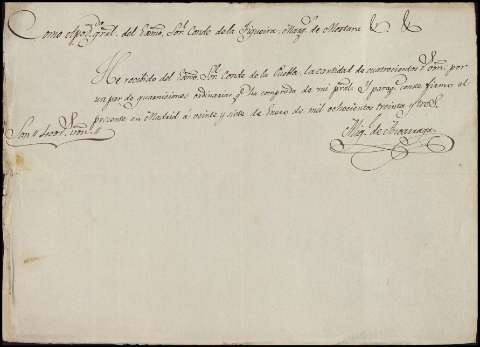 Como Apod.º gral. del Exmo. Sor. Conde de la Figueira, Marq.s de Mortara &. &.
He recibido del Exmo. Sor. Conde de la Puebla, la cantidad de cuatrocientos r.s von. por
un par de guarniciones ordinarias q.e ha comprado de mi pral. Y para q.e conste firmo el
presente en Madrid á veinte y siete de Enero de mil ochocientos treinta y tres.
Son 400 r.s von.
Mig.l de